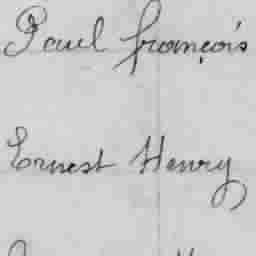 Paul François
Ernest Henry